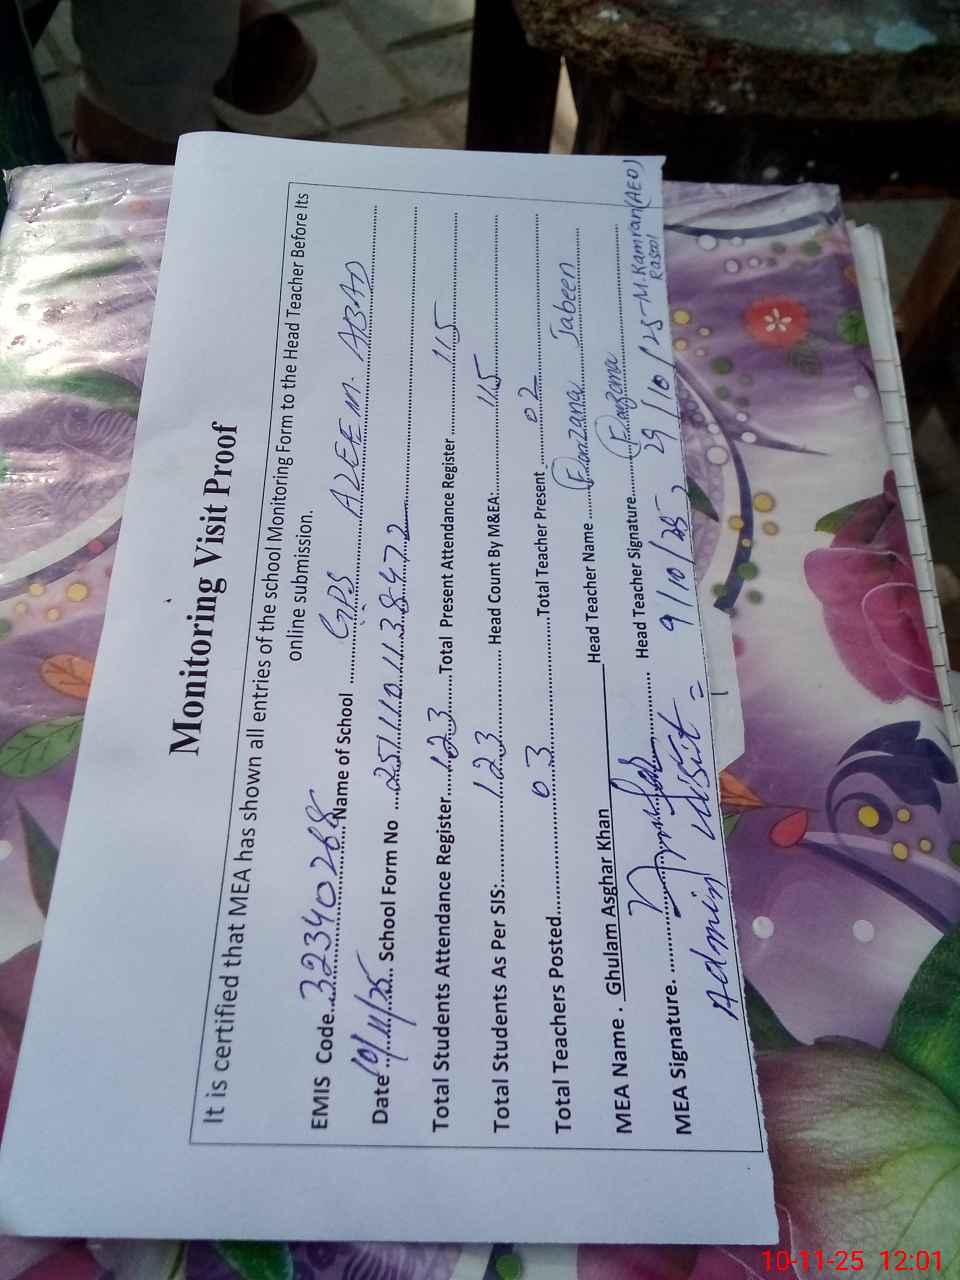 Monitoring Visit Proof
It is certified that MEA has shown all entries of the school Monitoring Form to the Head Teacher Before Its
online submission.
EMIS Code...32340268...Name of School ...GPS AZEEM. ABAD...
Date...10/11/25... School Form No ...2511101138472...
Total Students Attendance Register...123...Total Present Attendance Register ...115...
Total Students As Per SIS:...123... Head Count By M&EA:...115...
Total Teachers Posted...03...Total Teacher Present ...02...
MEA Name . Ghulam Asghar Khan Head Teacher Name ...Farzana Jabeen...
MEA Signature. ... Head Teacher Signature...Farzana...
Admin visit = 9/10/25, 29/10/25-M.Kamran(AEO)
Rasool
10-11-25 12:01